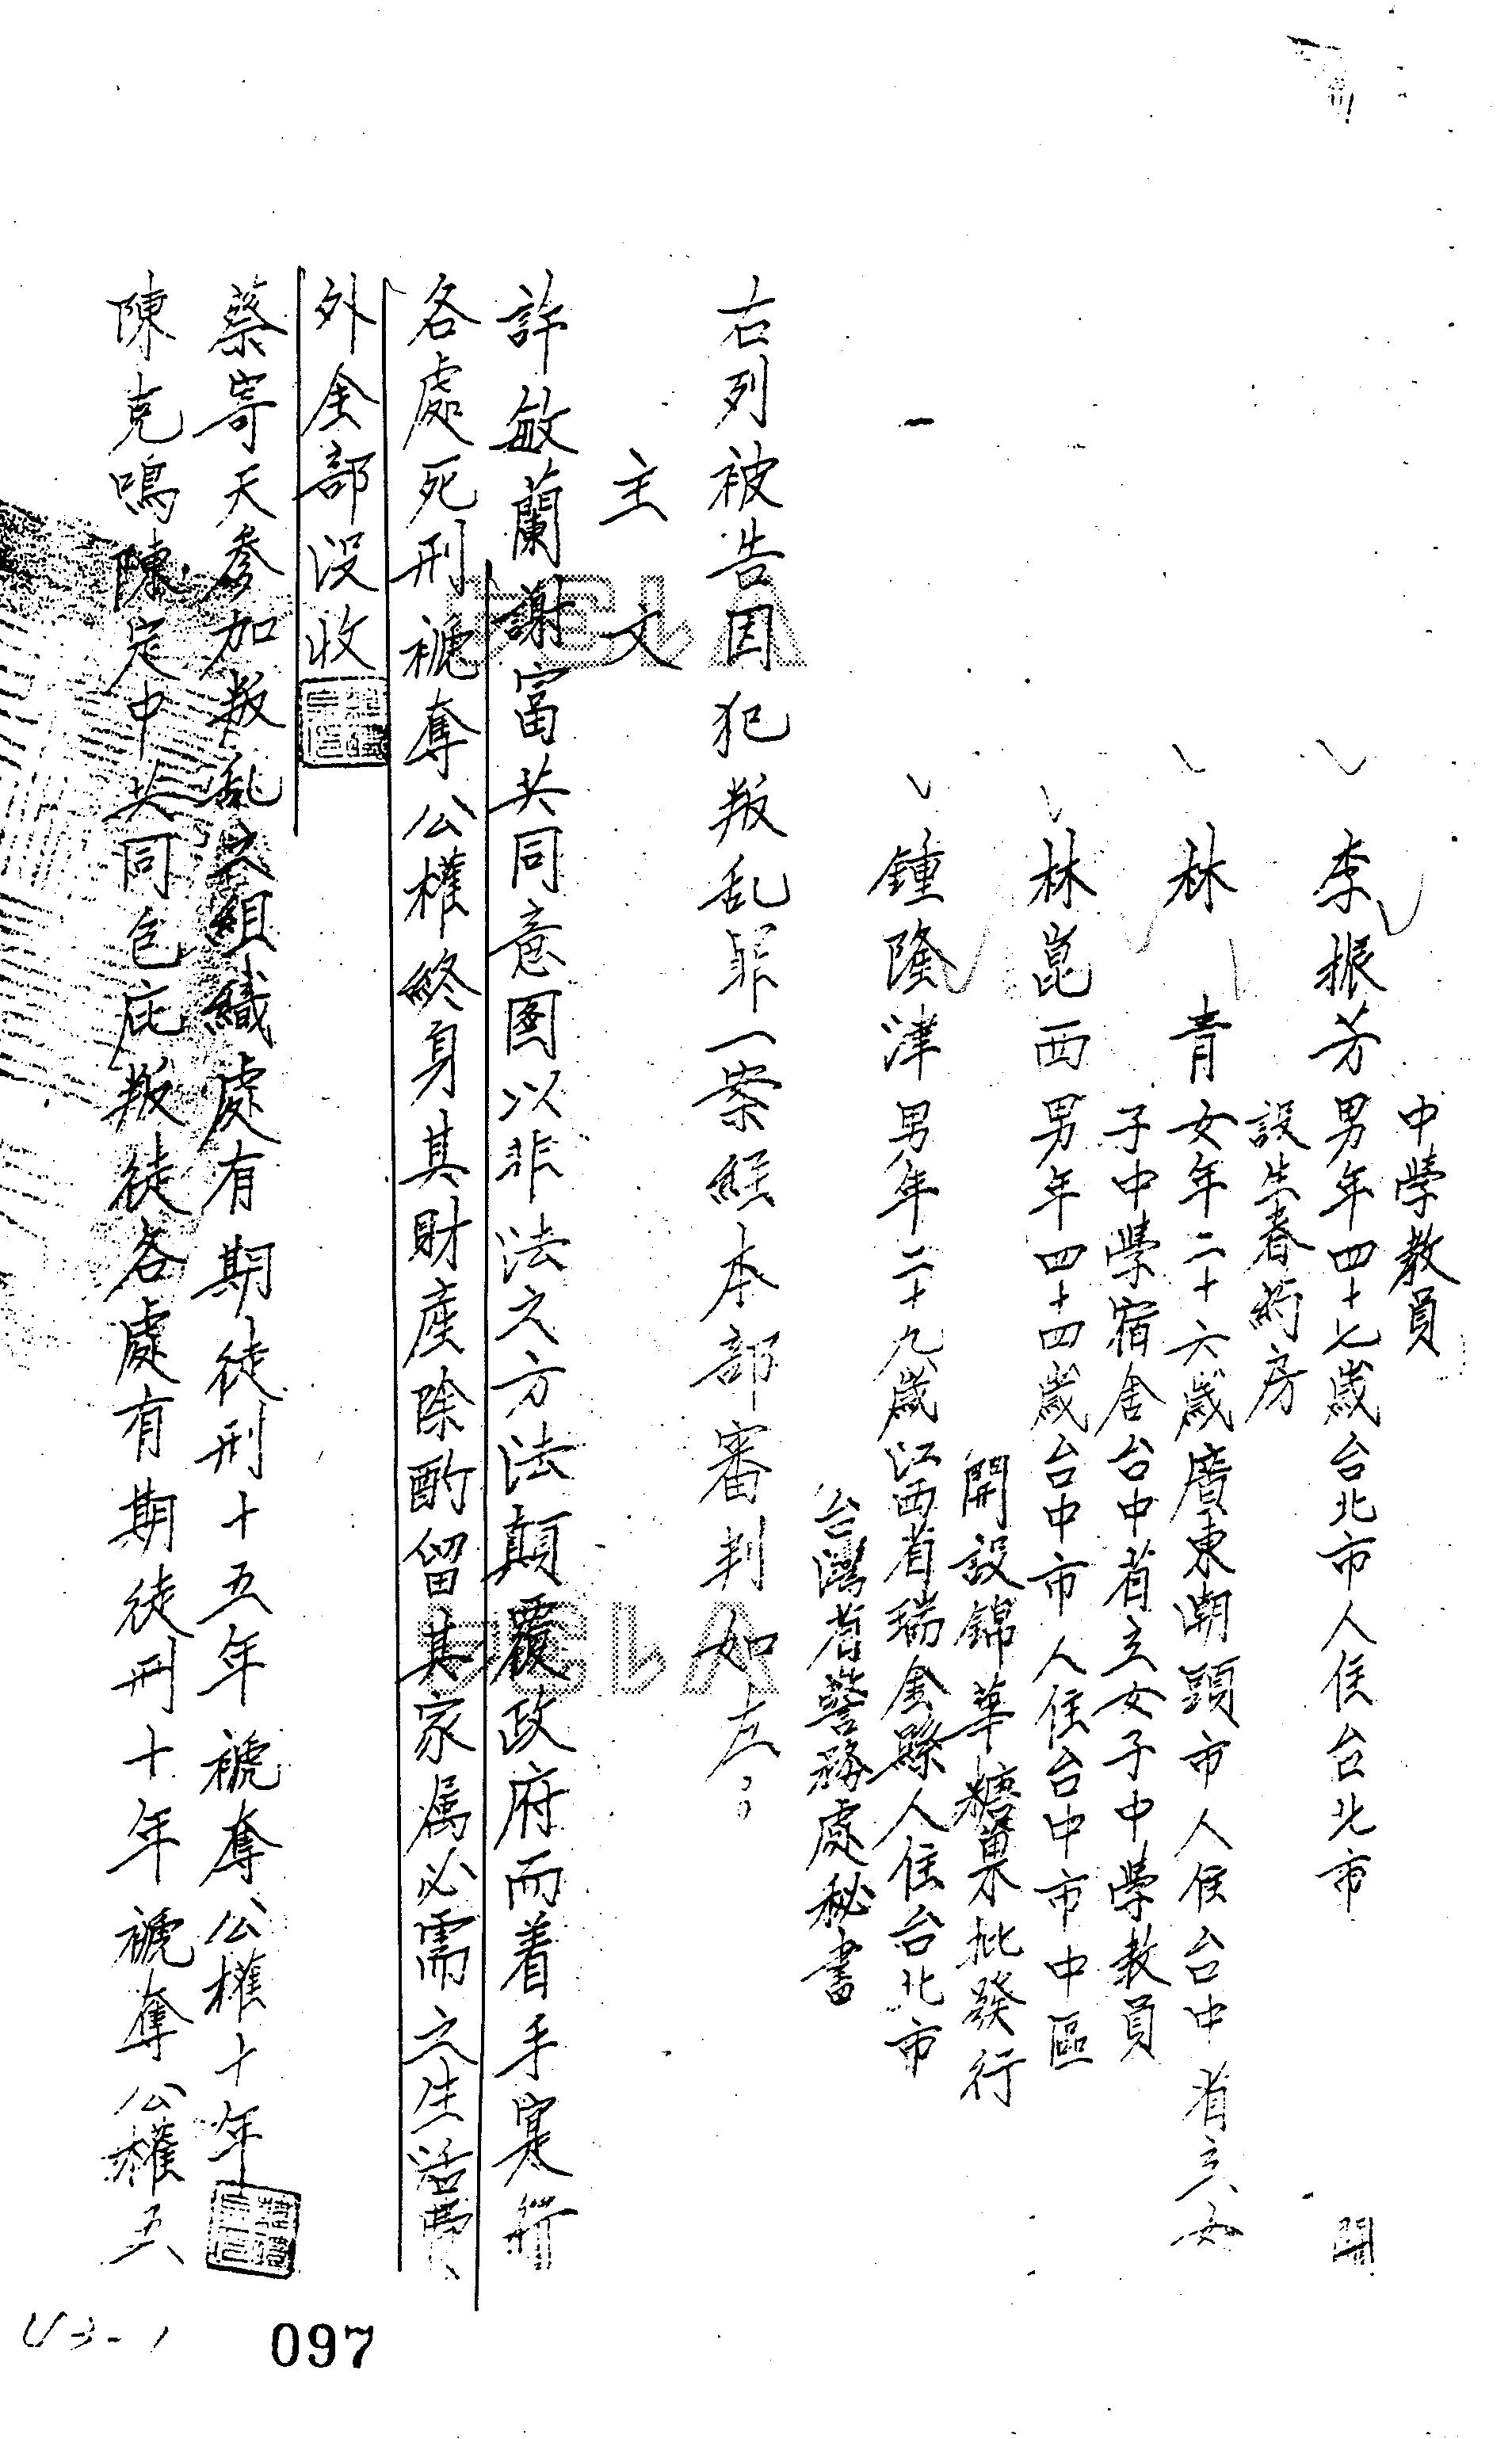 中學教員
李振芳男年四十七歲台北市人住台北市 開
設生春葯房
林 青女年二十六歲廣東潮頭市人住台中省立女
子中學宿舍台中省立女子中學教員
林崑西男年四十四歲台中市人住台中市中區
開設錦華糖菓批發行
鍾隆津男年二十九歲江西省瑞金縣人住台北市
台灣省警務處秘書
右列被告因犯叛乱罪一案經本部審判如左:
主文
許敏蘭謝富共同意图以非法之方法顛覆政府而着手寔行
各處死刑褫奪公權終身其財產除酌留其家属必需之生活費
外全部没收
蔡寄天參加叛乱之組織處有期徒刑十五年褫奪公權十年
陳克鳴陳定中共同包庇叛徒各處有期徒刑十年褫奪公權五
097